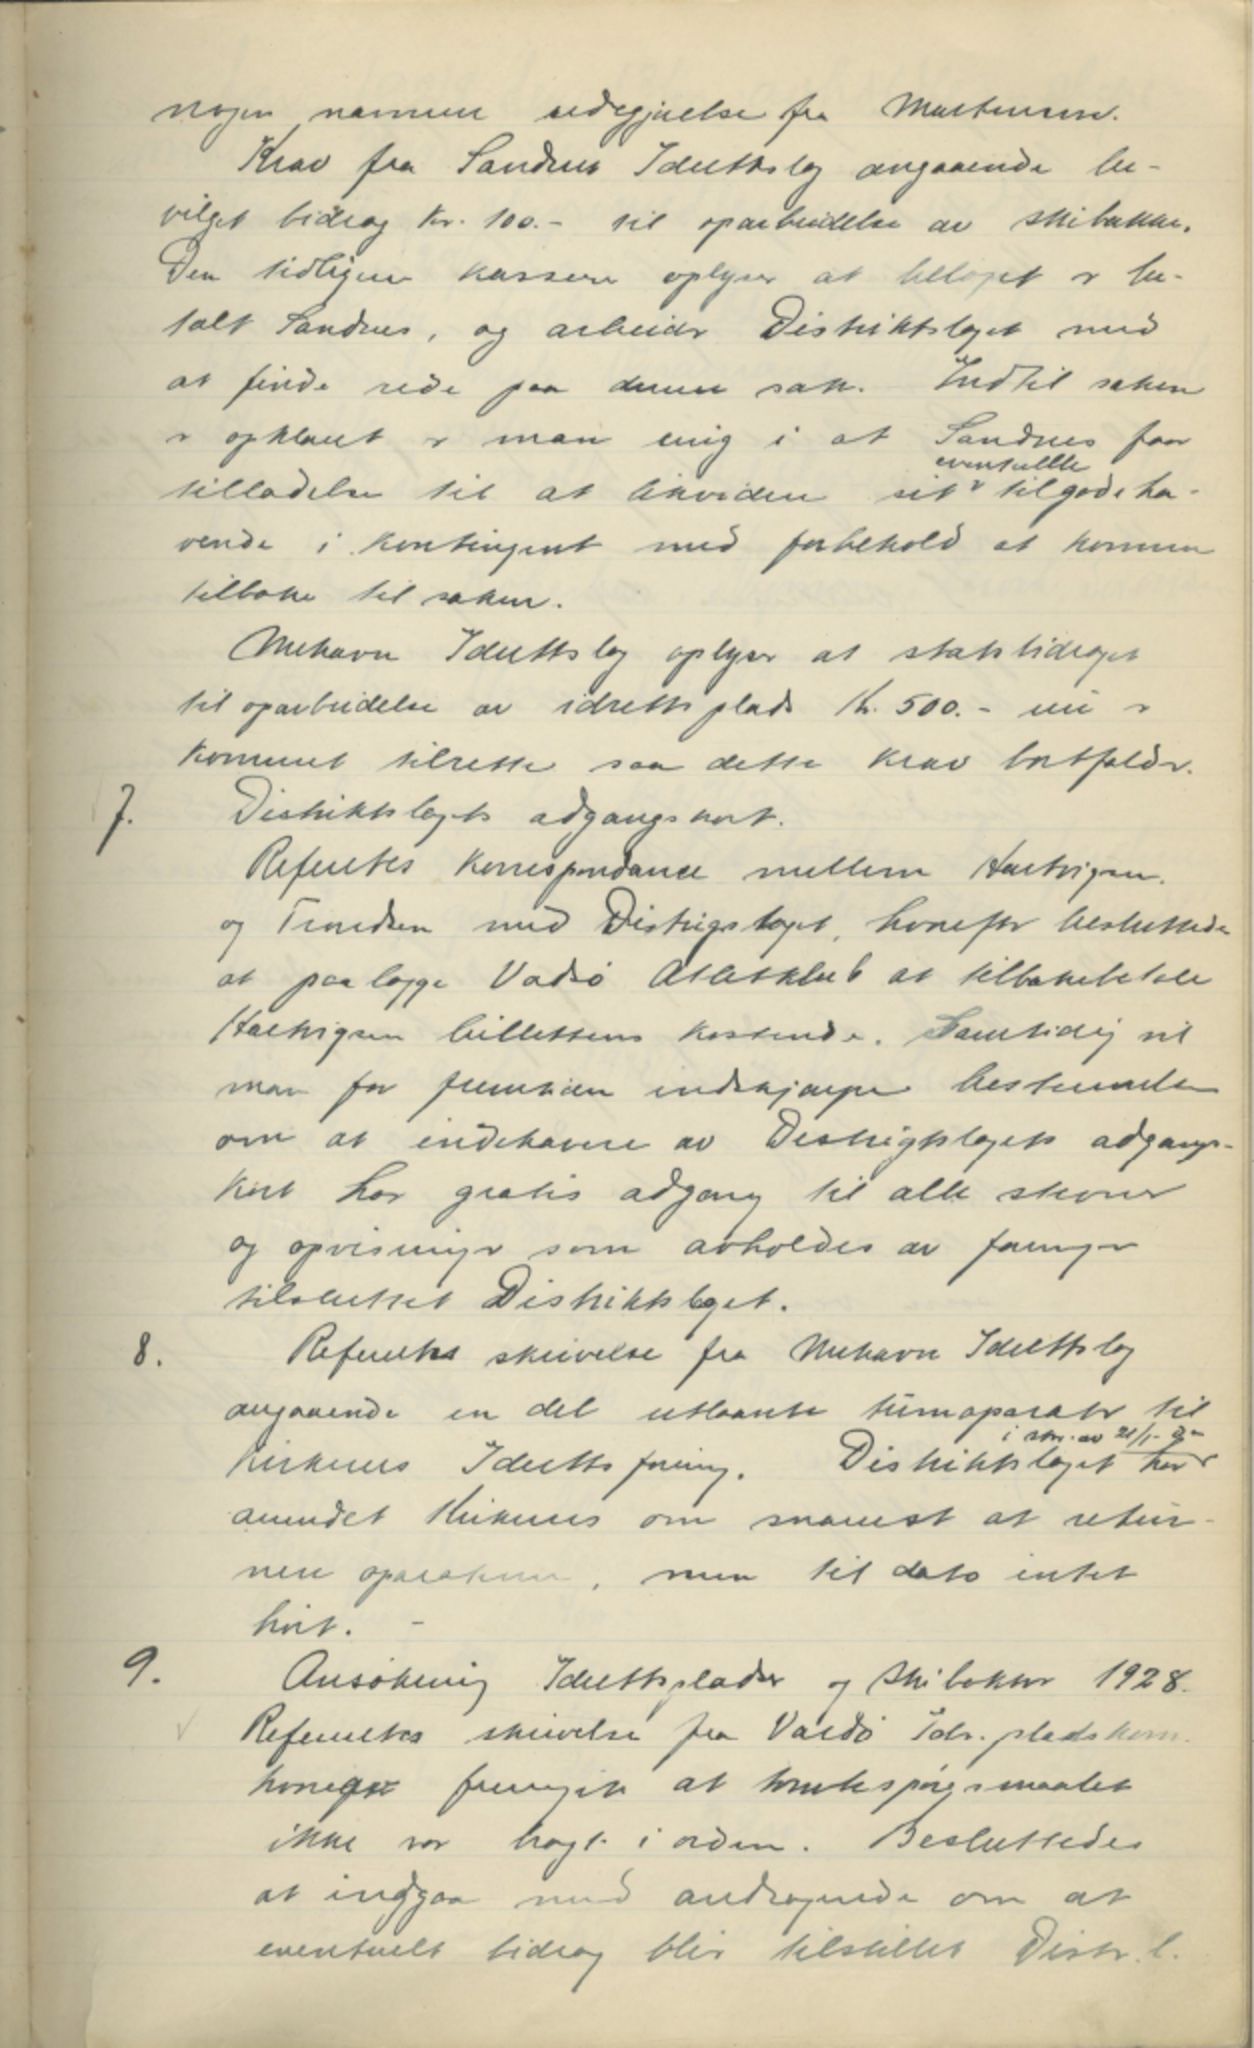 nogen nærmere redegjørelse fra Martensen.
Krav fra Sandnes Idrettslag angaaende be-
vilget bidrag kr. 100.- til oparbeidelse av skibakke.
Den tidligere kasserer oplyser at beløpet er be-
talt Sandnes, og arbeider Distriktslaget med
at finde rede paa denne sak. Indtil saken
er opklaret er man enig i at Sandnes faar
tilladelse til at likvidere sit eventuelle tilgodeha-
vende i kontingent med forbehold at komme
tilbake til saken.
Mehavn Idrettslag oplyser at statsbidraget
til oparbeidelse av idrettsplads kr. 500.- nu er
kommet tilrette saa dette krav bortfalder.
7. Distriktslagets adgangskort.
Refertes korrespondance mellem Hartvigsen
og Trondsen med Distrigtslaget, hvorefter besluttedes
at paalægge Vadsö Atletklub at tilbakebetale
Hartvigsen billettens kostende. Samtidig vil
man for fremtiden indskjærpe bestemmelsen
om at indehavere av Distrigtslagets adgangs-
kort har gratis adgang til alle stevner
og opvisninger som avholdes av foreninger
tilsluttet Distriktslaget.
8. Refertes skrivelse fra Mehavn Idrettslag
angaaende en del utlaante turnapparater til
i skr. av 21/1- d.a.
Kirkenes Idrettsforening. Distriktslaget har
anmodet Kirkenes om snarest at retur-
nere aparatene, men til dato intet
hört. -
9. Ansökning Idrettspladser og skibakker 1928.
Refertes skrivelse fra Vardö Idr.pladskom.
hvorav fremgik at tomtespörgsmaalet
ikke var bragt i orden. Besluttedes
at indgaa med andragende om at
eventuelt bidrag blir tilstillet Distr.l.